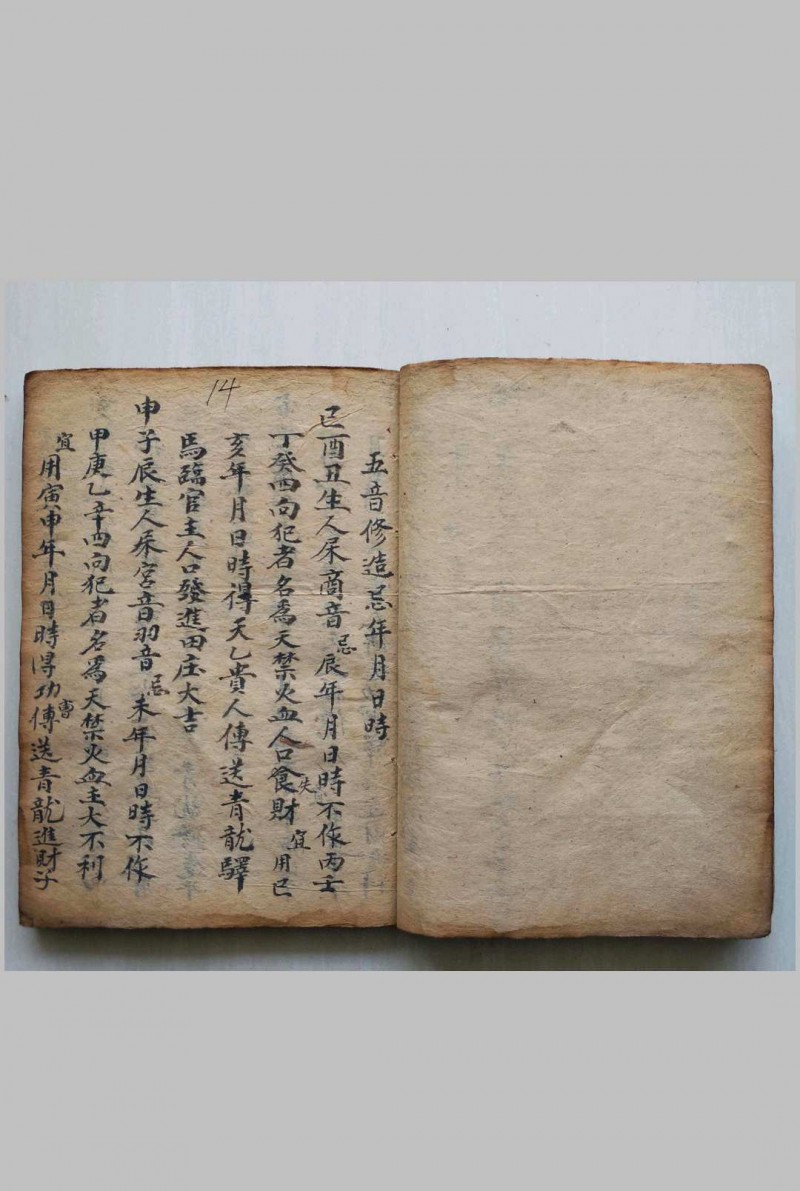 五音修造忌年月日時
巳酉丑生人屬商音忌辰年月日時不作丙壬
丁癸四向犯者名為天禁火血人口食失財宜用巳
亥年月日時得天乙貴人傳送青龍驛
馬臨官主人口發進田庄大吉
申子辰生人系宮音羽音忌未年月日時不作
甲庚乙辛四向犯者名為天禁火血主大不利
宜用寅申年月日時得功曹傳送青龍進財子
14